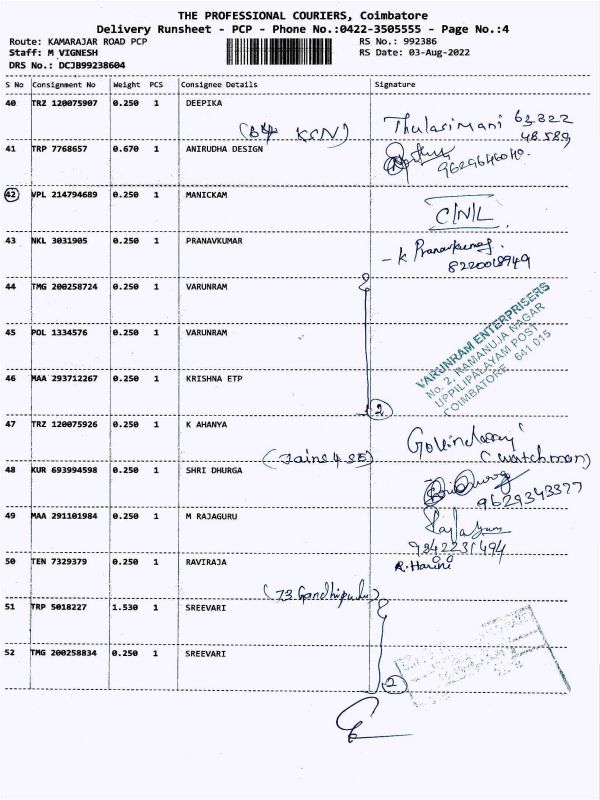 THE PROFESSIONAL COURIERS, Coimbatore
Delivery Runsheet - PCP - Phone No.:0422-3505555 - Page No.:4
Route: KAMARAJAR ROAD PCP RS No.: 992386
Staff: M VIGNESH RS Date: 03-Aug-2022
DRS No.: DCJB99238604
S No Consignment No Weight PCS Consignee Details Signature
40 TRZ 120075907 0.250 1 DEEPIKA
Thulasimani 63822
48589
41 TRP 7768657 0.670 1 ANIRUDHA DESIGN
42 VPL 214794689 0.250 1 MANICKAM
C/N/L
43 NKL 3031905 0.250 1 PRANAVKUMAR
- K Pranavkumar
8220018949
44 TMG 200258724 0.250 1 VARUNRAM
45 POL 1334576 0.250 1 VARUNRAM
VARUNRAM ENTERPRISERS
No. 2, RAMANUJA NAGAR
UPPILIPALAYAM POST
COIMBATORE 641 015
46 MAA 293712267 0.250 1 KRISHNA ETP
2
47 TRZ 120075926 0.250 1 K AHANYA
(watchman)
48 KUR 693994598 0.250 1 SHRI DHURGA
9629343377
49 MAA 291101984 0.250 1 M RAJAGURU
9842231494
50 TEN 7329379 0.250 1 RAVIRAJA
R. Harini
51 TRP 5018227 1.530 1 SREEVARI
52 TMG 200258834 0.250 1 SREEVARI
2